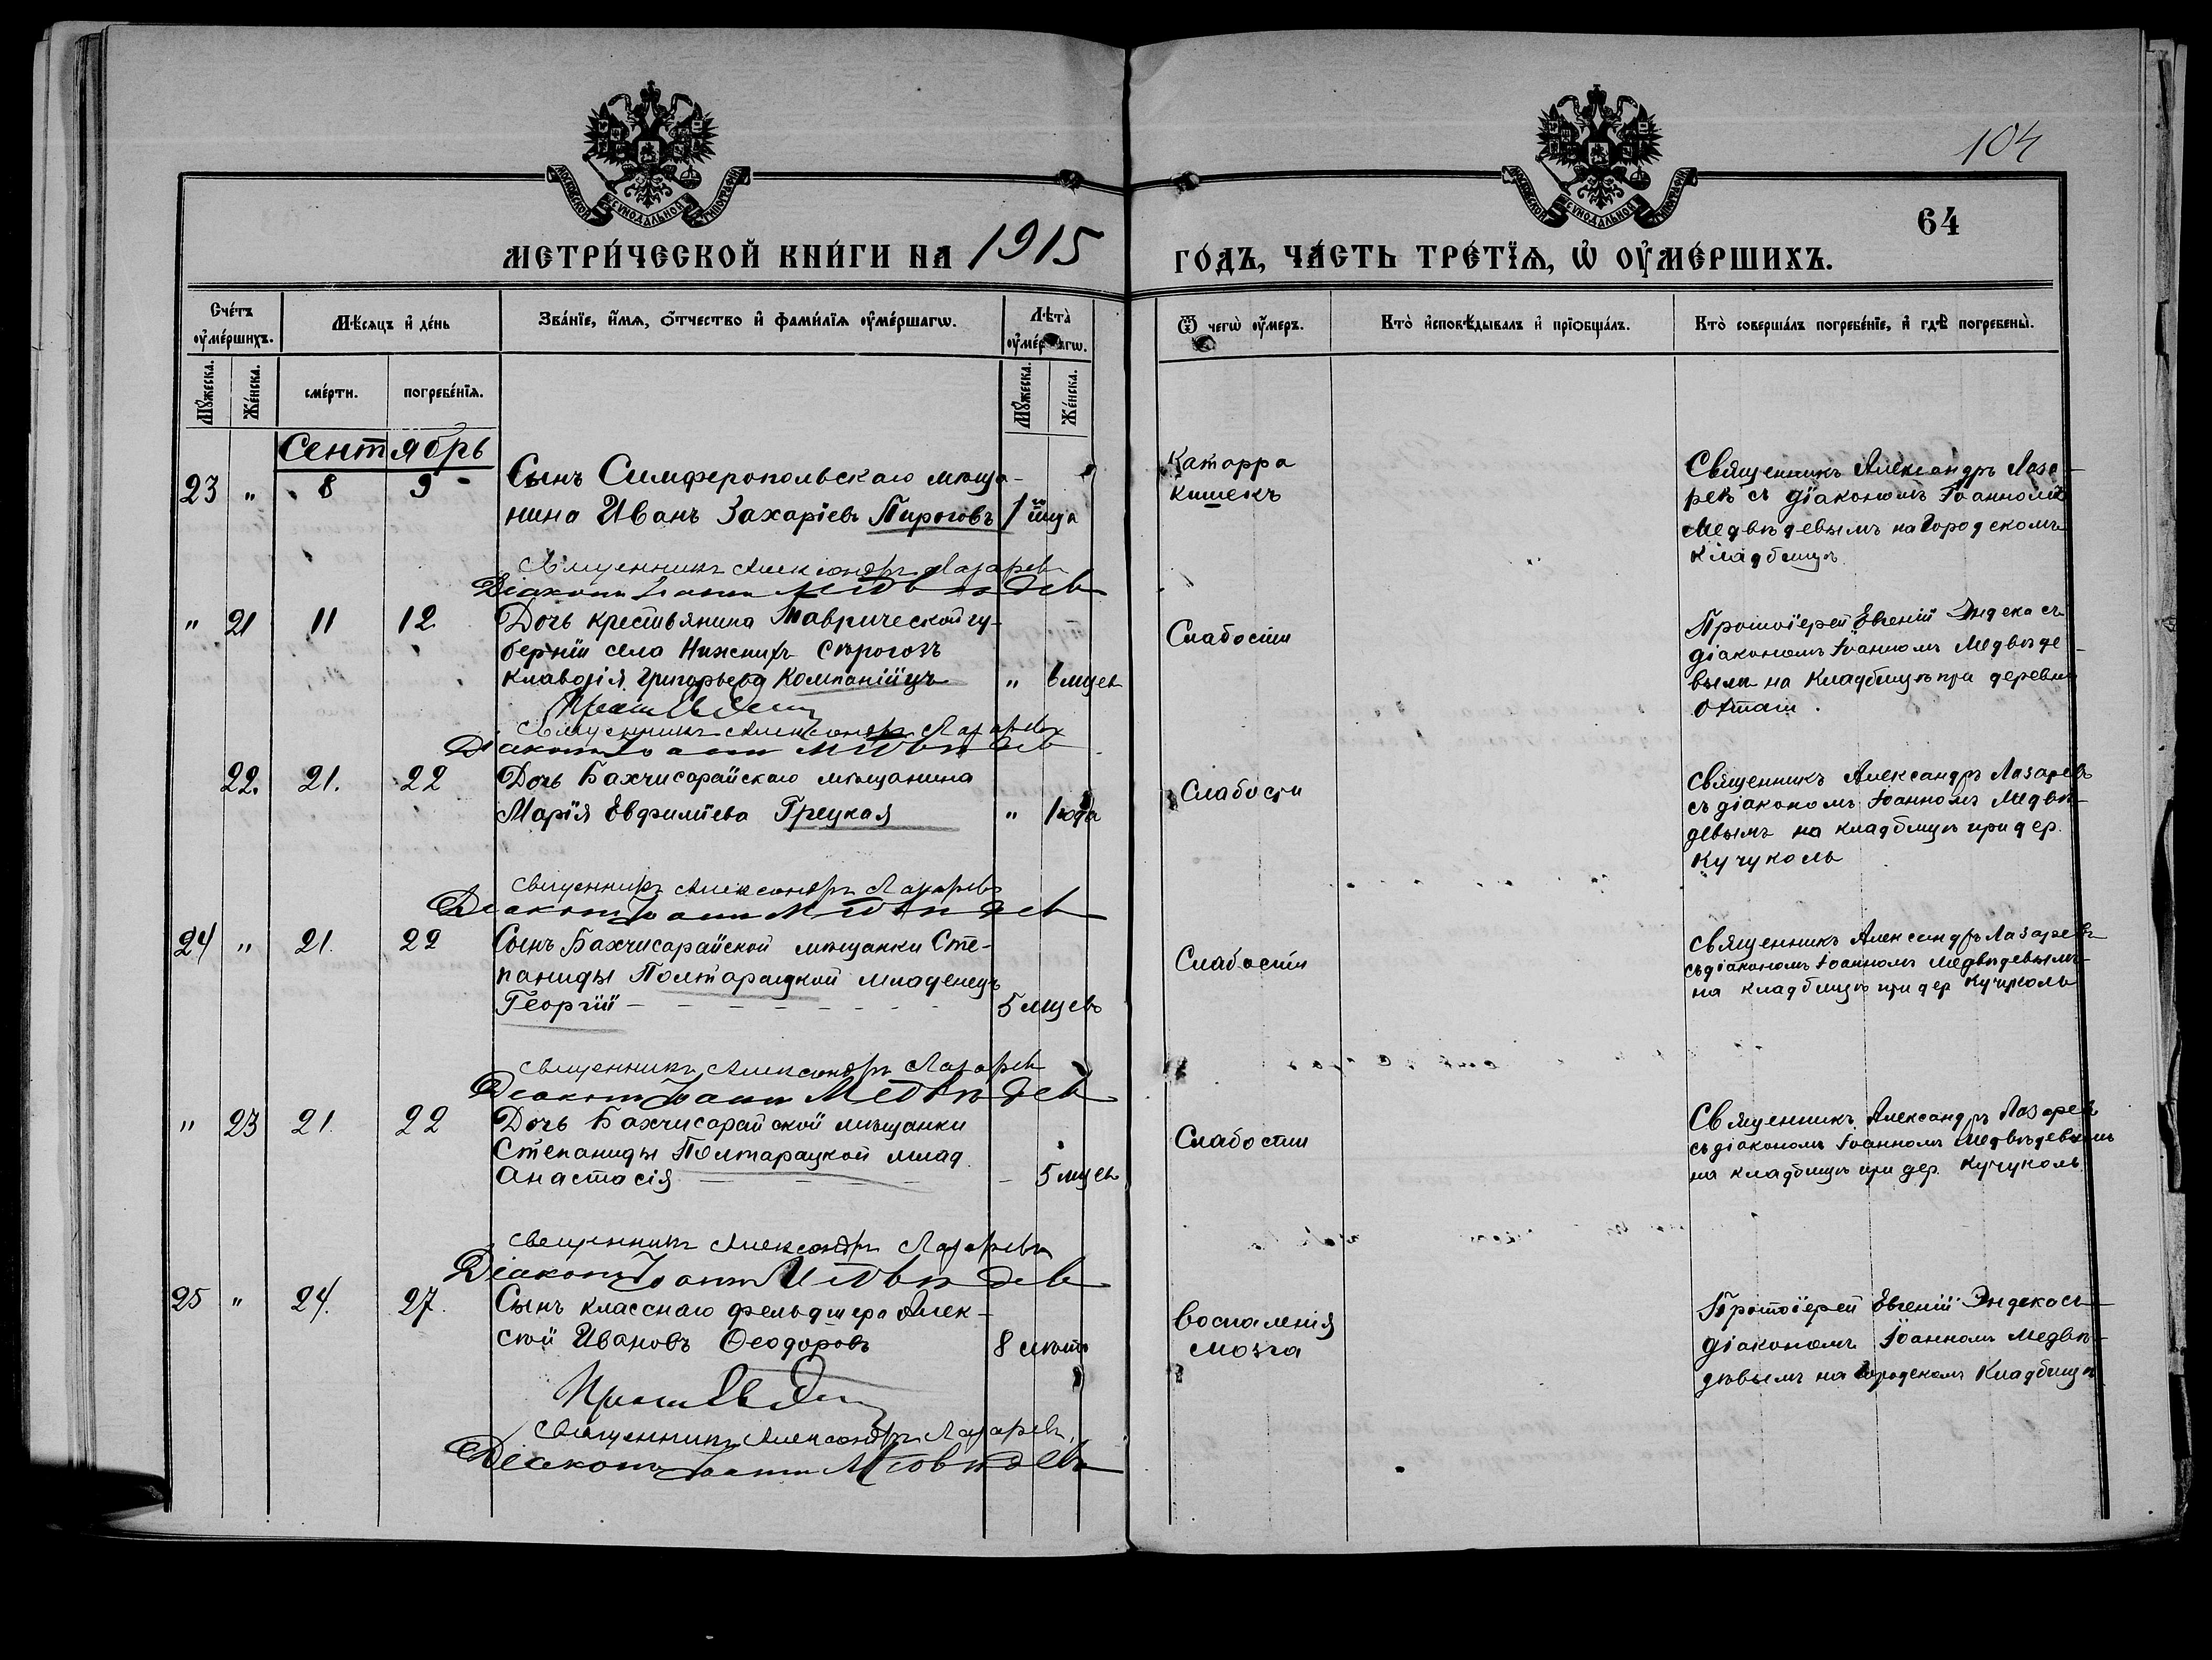 104
64
МОСКОВСКОЙ СУНОДАЛЬНОЙ ТИПОГРАФІИ
МОСКОВСКОЙ СУНОДАЛЬНОЙ ТИПОГРАФІИ
МЕТРИ́ЧЕСКОЙ КНИ́ГИ НА 1915 ГО́ДЪ, ЧА́СТЬ ТРЕ́ТЇѦ, Ѡ҆ ОУ҆МЕ́РШИХЪ.
Сче́тъ оу҆ме́ршихъ.
Мꙋ́жеска.
Же́нска.
Мѣ́сѧцъ и҆ де́нь
сме́рти.
погребе́нїѧ.
Зва́нїе, и҆́мѧ, ѻ҆́тчество и҆ фами́лїѧ оу҆ме́ршагѡ.
Лѣ́та оу҆ме́ршагѡ.
Мꙋ́жеска.
Же́нска.
Ѿ чегѡ̀ оу҆́меръ.
Кто̀ и҆сповѣ́дывалъ и҆ прїѡбща́лъ.
Кто̀ соверша́лъ погребе́нїе, и҆ гдѣ̀ погребены̀.
Сентябрь
23 " 8 9 Сынъ Симферопольскаго мѣща-
нина Иванъ Захаріевъ Пироговъ 1 мца
Катарра
кишекъ
Священникъ Александръ Лаза-
ревъ съ діакономъ Іоанномъ
Медвѣдевымъ на Городскомъ
кладбищѣ
Священникъ Александръ Лазаревъ
Діаконъ Іоаннъ Медвѣдевъ
" 21 11 12 Дочь крестьянина Таврической гу-
берніи села Нижнихъ Сѣрогозъ
Клавдія Григорьева Компаніецъ " 6 мцевъ
Слабости
Протоіерей Евгеній Эндека съ
діакономъ Іоанномъ Медвѣде-
вымъ на Кладбищѣ при деревнѣ
Актачи.
Священникъ Александръ Лазаревъ
Діаконъ Іоаннъ Медвѣдевъ
22. 21. 22 Дочь Бахчисарайскаго мѣщанина
Марія Евфиміева Грецкая " 1 года
Слабости
Священникъ Александръ Лазаревъ
съ діакономъ Іоанномъ Медвѣ-
девымъ на кладбищѣ при дер.
Кучуколь
Священникъ Александръ Лазаревъ
Діаконъ Іоаннъ Медвѣдевъ
24 " 21. 22 Сынъ Бахчисарайской мѣщанки Сте-
паниды Полтарацкой младенецъ
Георгій - - - - - - - 5 мцевъ
Слабости
Священникъ Александръ Лазаревъ
съ діакономъ Іоанномъ Медвѣдевымъ
на кладбищѣ при дер Кучуколь
Священникъ Александръ Лазаревъ
Діаконъ Іоаннъ Медвѣдевъ
" 23 21. 22 Дочь Бахчисарайской мѣщанки
Степаниды Полтарацкой млад.
Анастасія - - - - - 5 мцевъ
Слабости
Священникъ Александръ Лазаревъ
съ діакономъ Іоанномъ Медвѣдевымъ
на кладбищѣ при дер. Кучуколь
Священникъ Александръ Лазаревъ
Діаконъ Іоаннъ Медвѣдевъ
25 " 24. 27. Сынъ класснаго фельдшера Алек-
сѣй Ивановъ Ѳеодоровъ 8 лѣтъ
Воспаленія
мозга
Протоіерей Евгеній Эндека съ
діакономъ Іоанномъ Медвѣ-
девымъ на Городскомъ Кладбищѣ
Священникъ Александръ Лазаревъ
Діаконъ Іоаннъ Медвѣдевъ